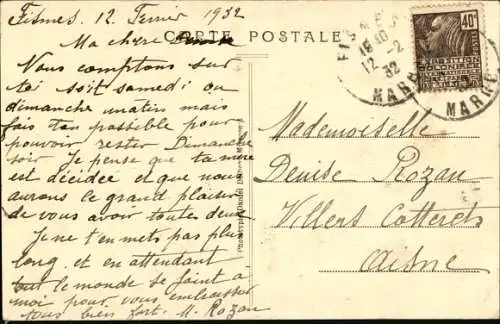 Fismes, 12 Fevrier 1932
CARTE POSTALE
Ma chère Denise
Vous comptons sur
toi soit samedi ou
dimanche matin mais
fais ton possible pour
pouvoir rester Dimanche
soir. Je pense que ta mère
est décidée et que nous
aurons le grand plaisir
de vous avoir toutes deux
Je ne t'en mets pas plus
long, et en attendant
tout le monde se joint à
moi pour vous embrasser
tous bien fort. M. Rozan
Mademoiselle
Denise Rozan
Villers Cotterets
Aisne
FISMES
18 10
12 -2
32
MARNE
40c
MARNE